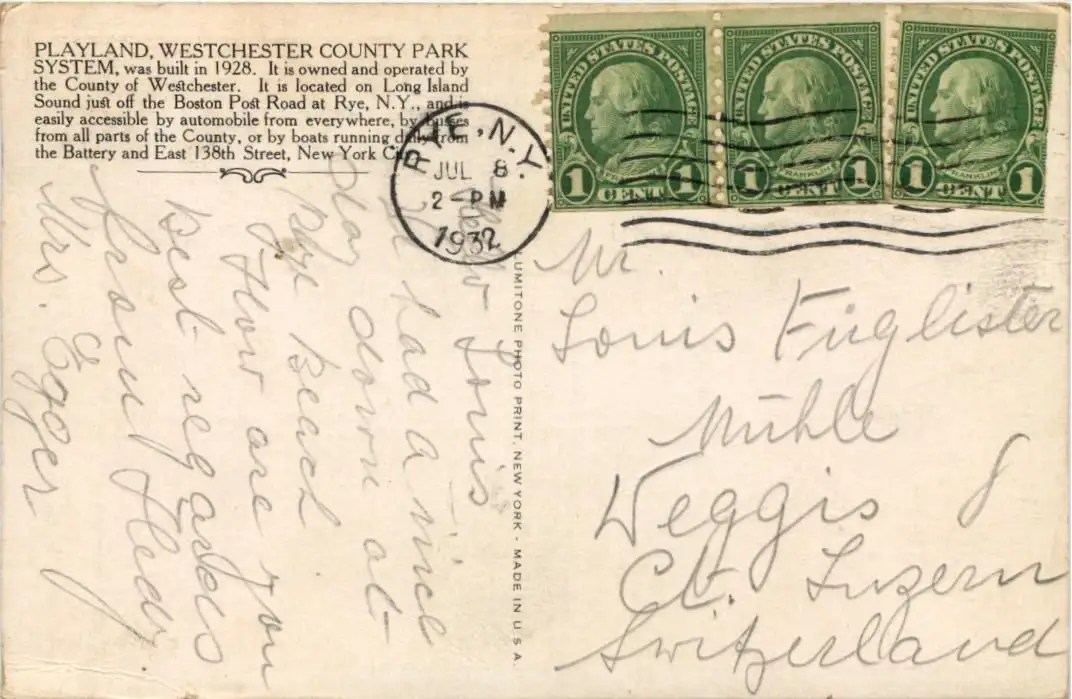 PLAYLAND, WESTCHESTER COUNTY PARK
SYSTEM, was built in 1928. It is owned and operated by
the County of Westchester. It is located on Long Island
Sound just off the Boston Post Road at Rye, N.Y., and is
easily accessible by automobile from everywhere, by busses
from all parts of the County, or by boats running daily from
the Battery and East 138th Street, New York City.
RYE, N.Y.
JUL 8
2-PM
1932
UNITED STATES POSTAGE
FRANKLIN
1 CENT 1
UNITED STATES POSTAGE
FRANKLIN
1 CENT 1
UNITED STATES POSTAGE
FRANKLIN
1 CENT 1
Louis
had a nice
day down at
Rye Beach
How are you
Best regards
from Hedy.
Mrs. Egger
LUMITONE PHOTO PRINT, NEW YORK - MADE IN U.S.A.
Mr.
Louis Füglister
Mühle
Weggis
Ct. Luzern
Switzerland